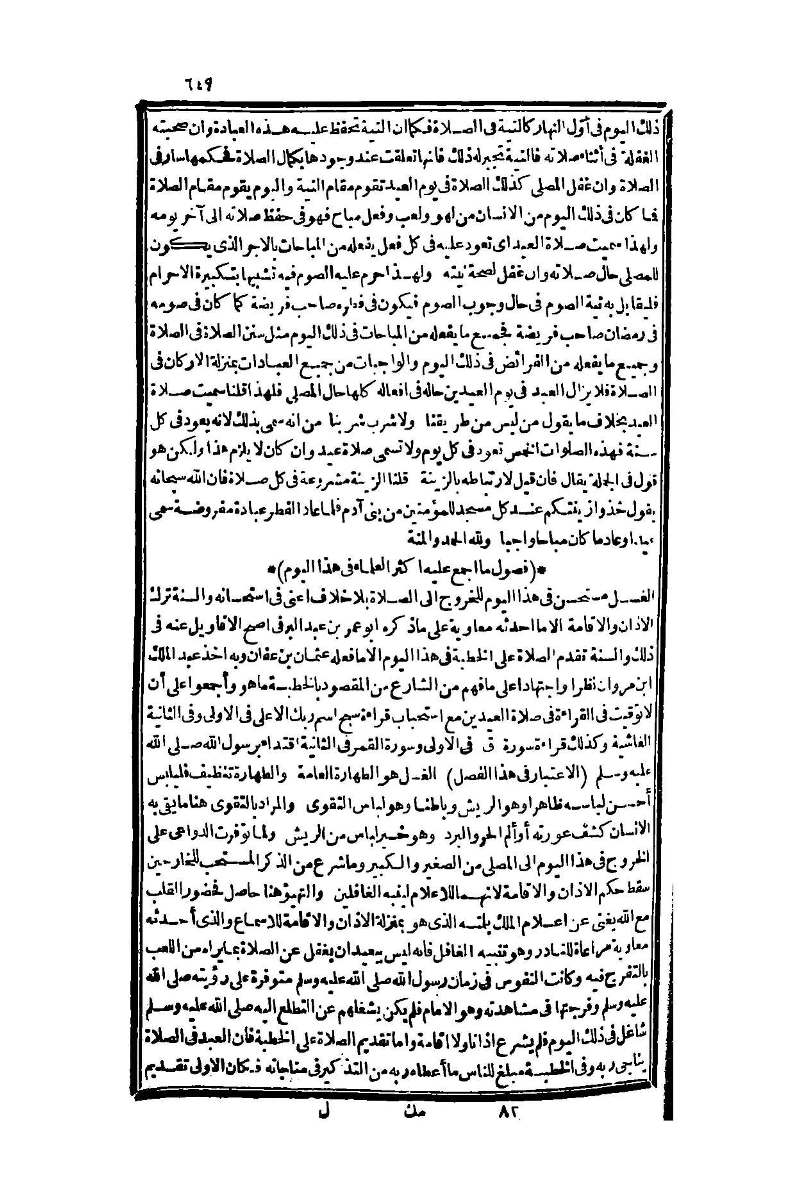 ٦٤٩
ذلك اليوم فى أوّل النهار كالنية فى الصلاة فكما ان النية تحفظ عليه هذه العبادة وان صحبته
الغفلة فى أثناء صلاته فالنية تجبر له ذلك فانها تعلقت عند وجودها بكمال الصلاة فحكمها سار فى
الصلاة وان غفل المصلى كذلك الصلاة فى يوم العيد تقوم مقام النية واليوم يقوم مقام الصلاة
فما كان فى ذلك اليوم من الانسان من لهو ولعب وفعل مباح فهو فى حفظ صلاته الى آخر يومه
ولهذا سميت صلاة العيد اى تعود عليه فى كل فعل يفعله من المباحات بالاجر الذى يكون
للمصلى حال صلاته وان غفل لصحة نيته ولهذا حرم عليه الصوم فيه تشبيها بتكبيرة الاحرام
فليقابل به نية الصوم فى حال وجوب الصوم فيكون فى فطره صاحب فريضة كما كان فى صومه
فى رمضان صاحب فريضة فجميع ما يفعله من المباحات فى ذلك اليوم مثل سنن الصلاة فى الصلاة
وجميع ما يفعله من الفرائض فى ذلك اليوم والواجبات من جميع العبادات بمنزلة الاركان فى
الصلاة فلا يزال العبد فى يوم العيدين حاله فى افعاله كلها حال المصلى فلهذا قلنا سميت صلاة
العيد بخلاف ما يقول من ليس من طريقنا ولا شرب شربنا من انه سمى بذلك لانه يعود فى كل
سنة فهذه الصلوات الخمس تعود فى كل يوم ولا تسمى صلاة عيد وان كان لا يلزم هذا ولكن هو
قول فى الجملة يقال فان قيل لارتباطه بالزينة قلنا الزينة مشروعة فى كل صلاة فان الله سبحانه
يقول خذوا زينتكم عند كل مسجد للمؤمنين من بنى آدم فلما عاد الفطر عبادة مفروضة سمى
عيدا وعاد ما كان مباحا واجبا ولله الحمد والمنة
*(فصول ما اجمع عليه اكثر العلماء فى هذا اليوم)*
الغسل مستحسن فى هذا اليوم للخروج الى الصلاة بلا خلاف اعنى فى استحسانه والسنة ترك
الاذان والاقامة الا ما احدثه معاوية على ما ذكره ابو عمر بن عبد البر فى اصح الاقاويل عنه فى
ذلك والسنة تقدم الصلاة على الخطبة فى هذا اليوم الا ما فعله عثمان بن عفان وبه اخذ عبد الملك
ابن مروان نظرا واجتهادا على ما فهم من الشارع من المقصود بالخطبة ما هو وأجمعوا على أن
لا توقيت فى القراءة فى صلاة العيدين مع استحباب قراءة سبح اسم ربك الاعلى فى الاولى وفى الثانية
الغاشية وكذلك قراءة سورة ق فى الاولى وسورة القمر فى الثانية اقتداء برسول الله صلى الله
عليه وسلم (الاعتبار فى هذا الفصل) الغسل هو الطهارة العامة والطهارة تنظيف فليلبس
أحسن لباسه ظاهرا وهو الريش وباطنا وهو لباس التقوى والمراد بالتقوى هنا ما يتقى به
الانسان كشف عورته أو ألم الحر والبرد وهو خير لباس من الريش ولما توفرت الدواعى على
الخروج فى هذا اليوم الى المصلى من الصغير والكبير وما شرع من الذكر المستحب للخارجين
سقط حكم الاذان والاقامة لانهما للاعلام لينبه الغافلين والتهيؤ هنا حاصل فحضور القلب
مع الله يغنى عن اعلام الملك بلمته الذى هو بمنزلة الاذان والاقامة للاسماع والذى أحدثه
معاوية مراعاة للنادر وهو تنبيه الغافل فانه ليس ببعيد ان يغفل عن الصلاة بما يراه من اللعب
بالتفرج فيه وكانت النفوس فى زمان رسول الله صلى الله عليه وسلم متوفرة على رؤيته صلى الله
عليه وسلم وفرجتها فى مشاهدته وهو الامام فلم يكن يشغلهم عن التطلع اليه صلى الله عليه وسلم
شاغل فى ذلك اليوم فلم يشرع اذانا ولا اقامة واما تقديم الصلاة على الخطبة فان العبد فى الصلاة
يناجى ربه وفى الخطبة مبلغ للناس ما أعطاه ربه من التذكير فى مناجاته فكان الاولى تقديم
٨٢ مك ل